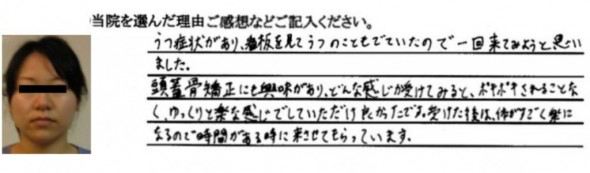 当院を選んだ理由ご感想などご記入ください。
うつ症状があり、看板を見てうつのこともでていたので一回来てみようと思い
ました。
頭蓋骨矯正にも興味があり、どんな感じか受けてみると、ボキボキされることな
く、ゆっくりと楽な感じでしていただけ良かったです。受けた後は、体がすごく楽に
なるので時間がある時に来させてもらっています。